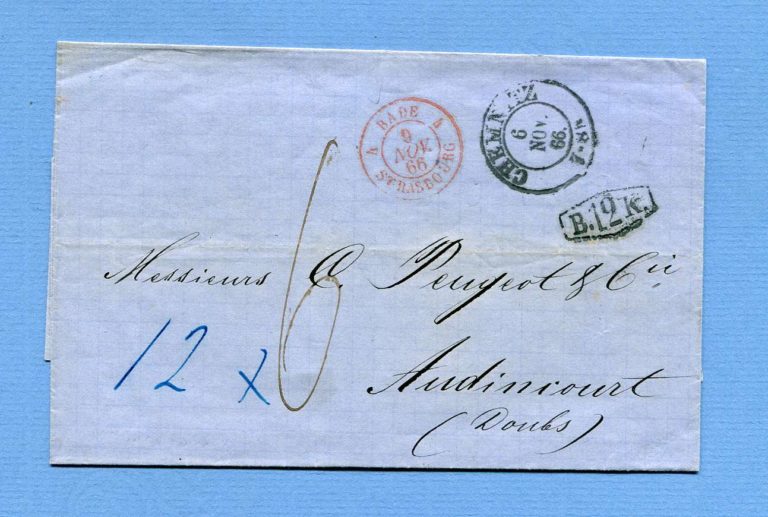 4 BADE 4
9
NOV.
66
STRASBOURG
CHEMNITZ
6
NOV.
66.
B.12K.
6
Messieurs C. Peugeot & Cie
12 x
Audincourt
(Doubs)